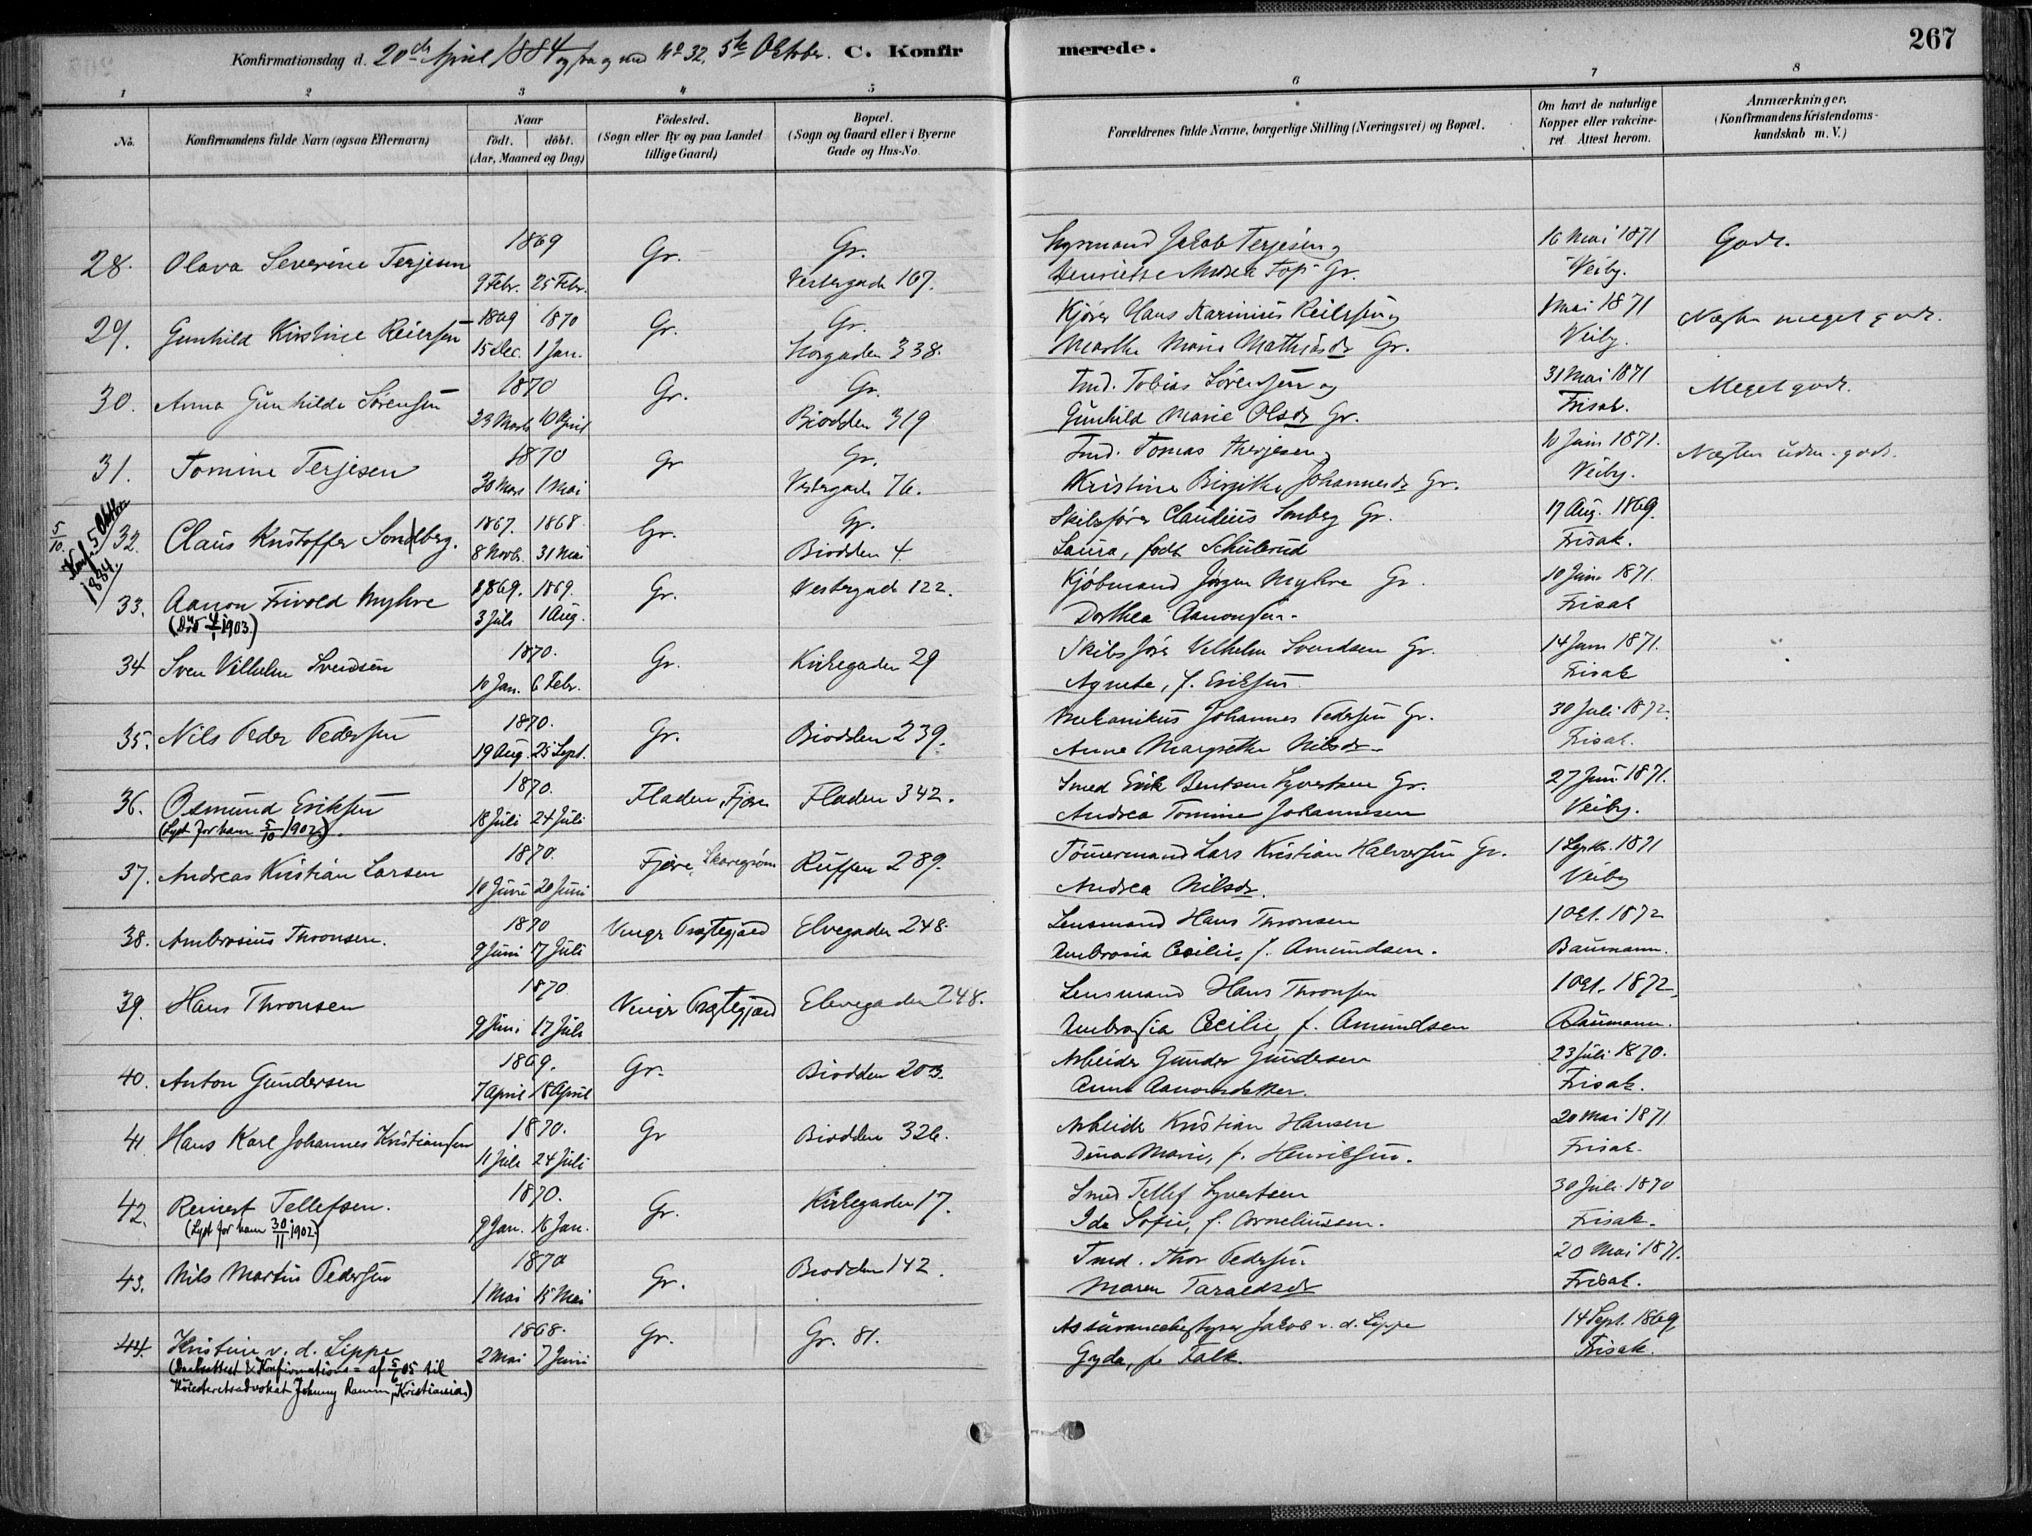 267
Konfirmationsdag d. 20de April 1884 og fra og med No 32, 5te Oktober. C. Konfirmerede.
1 2 3 4 5 6 7 8
No.
Konfirmandens fulde Navn (ogsaa Efternavn)
Naar
födt. döbt.
(Aar, Maaned og Dag)
Födested.
(Sogn eller By og paa Landet
tillige Gaard)
Bopæl.
(Sogn og Gaard eller i Byerne
Gade og Hus-No.
Forældrenes fulde Navne, borgerlige Stilling (Næringsvei) og Bopæl.
Om havt de naturlige
Kopper eller vakcine-
ret. Attest herom.
Anmærkninger.
(Konfirmandens Kristendoms-
kundskab m. V.)
1869 Gr. Gr. Jakob Terjesen 16 Mai 1871 Godt.
28. Olava Severine Terjesen 9 Febr. 25 Febr. Vestergade 167. Henriette Gr. Veiby.
1869 1870 Gr. Gr. Kjører Hans 1 Mai 1871 Næsten meget godt.
29. Gunhild Kirstine Reiersen 15 Dec. 1 Jan. Storgaden 338. Marthe Marie Mathiasdr Gr. Veiby.
1870 Gr. Gr. Tmd. Tobias Sørensen og 31 Mai 1871 Meget godt.
30. Anna Gunhilde Sørensen 23 Marts 10 April Biodden 319 Gunhild Marie Olsdr Gr. Frisak.
1870 Gr Gr. Tmd. Tomas Therjesen 10 Juni 1871. Næsten udm. godt.
31. Tomine Terjesen 30 Mars 1 Mai Vestergade 76. Kristine Birgithe Johannesdr Gr. Veiby.
5/10. Konf. 5 Oktber 1884.
1867. 1868. Gr. Gr. Skibsfører Claudius Sonberg Gr. 17 Aug. 1869.
32. Claus Kristoffer Sondberg. 8 Novbr. 31 Mai Biodden 4. Laura, født Schulerud Frisak.
1869. 1869. Gr. Vestergade 122. Kjøbmand Jørgen Myhre Gr. 10 Juni 1871.
33. Aanon Frivold Myhre 3 Juli 1 Aug. Dorthea Aanonsen. Frisak
(Død 4/1 1903.)
1870. Gr. Kirkegaden 29 Skibsfører Vilhelm Svendsen Gr. 14 Juni 1871.
34 Sven Vilhelm Svendsen 10 Jan. 6 Febr. Agnete, f. Eriksen Frisak
1870. Gr. Biodden 239. Mekanikus Johannes Pedersen Gr. 30 Juli 1872.
35. Nils Peder Pedersen 19 Aug. 25 Sept. Anne Margrethe Nilsdr Frisak.
1870. Fladen, Fjære Fladen 342. Smed Erik Bentsen Gr. 27 Juni 1871.
36. Osmund Eriksen 18 Juli 24 Juli Andrea Tomine Johannesen Veiby.
(Lyst for ham 5/10 1902.)
1870. Fjære, Ruffen 289. Tømermand Lars Kristian Halvorsen Gr. 1 Septr. 1871
37. Andreas Kristian Larsen 10 Juni 20 Juni Andrea Nilsdr. Veiby
1870 Vinger Elvegaden 248. Lensmand Hans Thronsen 1 Oct. 1872
38. Ambrosius Thronsen. 9 Juni 17 Juli Ambrosia Cecilie, f. Amundsen. Baumann.
1870 Vinger Elevegaden 248. Lensmand Hans Thronsen 1 Oct. 1872,
39. Hans Thronsen 9 Juni 17 Juli Ambrosia Cecilie, f. Amundsen Baumann.
1869. Gr. Biodden 203. Arbeider Gunder Gundersen 23 Juli 1870.
40. Anton Gundersen 7 April 18 April Anne Aanonsdatter. Frisak.
1870. Gr Biodden 326. Arbeider Kristian Hansen 20 Mai 1871
41. Hans Karl Johannes Kristiansen 11 Juli 24 Juli Dina Marie, f. Henriksen. Frisak.
1870. Gr. Kirkegaden 17. Smed Tellef Syvertsen 30 Juli 1870
42. Reinert Tellefsen. 9 Jan. 16 Jan. Ida Sofie, f. Corneliussen. Frisak.
(Lyst for ham 30/11 1902.)
1870 Gr. Biodden 142. Tmd. Thor Pedersen. 20 Mai 1871.
43. Nils Martin Pedersen 1 Mai 15 Mai Maren Taraldsdr Frisak.
1868. Gr. Gr. 81. Assurancebestyrer Jakob v. d. Lippe 14 Sept. 1869
44. Kristine v. d. Lippe 2 Mai 7 Juni Gyda, f. Falk. Frisak.
(Daabsattest & Konfirmations= af 5/6 05 til
Höiesteretsadvokat Johnny Ramm, Kristiania)